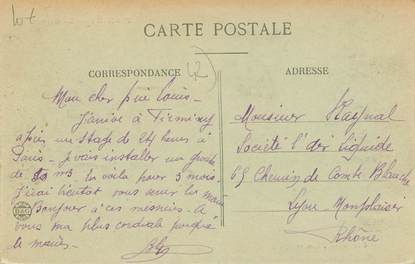 lot
CARTE POSTALE
CORRESPONDANCE
42
ADRESSE
Mon cher
J'arrive à Firminy
après un stage de 24 heures à
Paris. Je vais installer un groupe
de 50 m3 la voila pour 3 mois.
J'irai bientot vous serrer la main
Bonjour à ces messieurs. A
vous ma plus cordiale poignée
de mains.
B&G
Monsieur Raynal
Société l'air liquide
65 Chemin de Combe Blanche
Lyon Monplaisir
Rhône